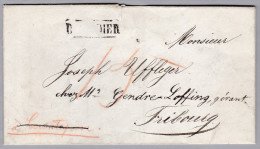 Monsieur
Joseph Uffleger
chez Mr Gendre-Loffing, gérant.
Fribourg